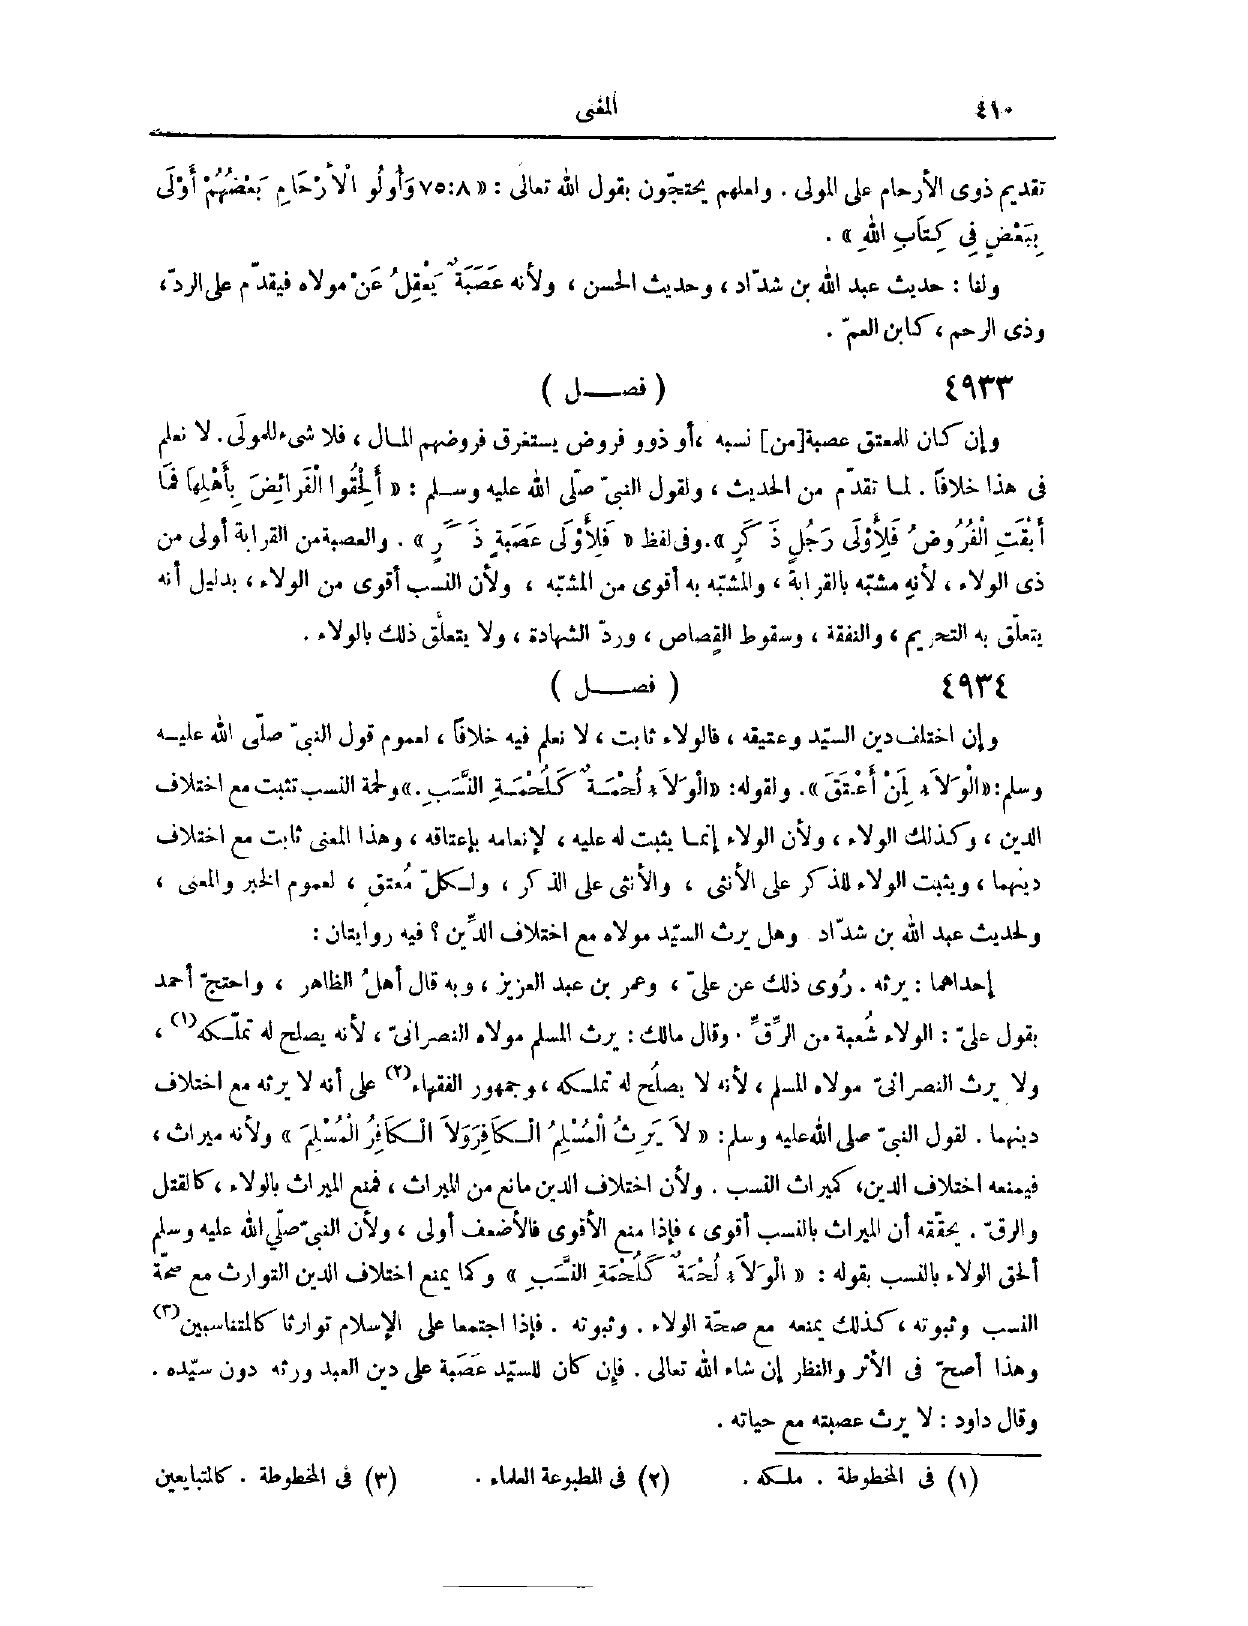 ٤١٠
المغنى
تقديم ذوى الأرحام على المولى . ولعلهم يحتجّون بقول الله تعالى : « ٧٥:٨ وَأُولُو الْأَرْحَامِ بَعْضُهُمْ أَوْلَى
بِبَعْضٍ فِي كِتَابِ اللهِ » .
ولنا : حديث عبد الله بن شدّاد ، وحديث الحسن ، ولأنه عَصَبَةٌ يَعْقِلُ عَنْ مولاه فيقدّم على الردّ ،
وذى الرحم ، كابن العمّ .
٤٩٣٣ ( فصــل )
وإن كان للمعتق عصبة [من] نسبه ، أو ذوو فروض يستغرق فروضهم المال ، فلا شىء للمولَى . لا نعلم
فى هذا خلافًا . لما تقدّم من الحديث ، ولقول النبىّ صلّى الله عليه وسلم : « أَلْحِقُوا الْفَرَائِضَ بِأَهْلِهَا فَمَا
أَبْقَتِ الْفُرُوضُ فَلِأَوْلَى رَجُلٍ ذَكَرٍ » . وفى لفظ « فَلِأَوْلَى عَصَبَةٍ ذَكَرٍ » . والعصبة من القرابة أولى من
ذى الولاء ، لأنه مشبّه بالقرابة ، والمشبّه به أقوى من المشبّه ، ولأن النسب أقوى من الولاء ، بدليل أنه
يتعلّق به التحريم ، والنفقة ، وسقوط القصاص ، وردّ الشهادة ، ولا يتعلّق ذلك بالولاء .
٤٩٣٤ ( فصــل )
وإن اختلف دين السيّد وعتيقه ، فالولاء ثابت ، لا نعلم فيه خلافًا ، لعموم قول النبىّ صلّى الله عليه
وسلم : «الْوَلَاءُ لِمَنْ أَعْتَقَ» . ولقوله : «الْوَلَاءُ لُحْمَةٌ كَلُحْمَةِ النَّسَبِ .» ولحمة النسب تثبت مع اختلاف
الدين ، وكذلك الولاء ، ولأن الولاء إنما يثبت له عليه ، لإنعامه بإعتاقه ، وهذا المعنى ثابت مع اختلاف
دينهما ، ويثبت الولاء للذكر على الأنثى ، والأنثى على الذكر ، ولكلّ مُعتق ، لعموم الخبر والمعنى ،
ولحديث عبد الله بن شدّاد . وهل يرث السيّد مولاه مع اختلاف الدِّين ؟ فيه روايتان :
إحداهما : يرثه . رُوى ذلك عن علىّ ، وعمر بن عبد العزيز ، وبه قال أهلُ الظاهر ، واحتجّ أحمد
بقول علىّ : الولاء شُعبة من الرِّقِّ . وقال مالك : يرث المسلم مولاه النصرانىّ ، لأنه يصلح له تملّكه (١) ،
ولا يرث النصرانىّ مولاه المسلم ، لأنه لا يصلُح له تملكه ، وجمهور الفقهاء (٢) على أنه لا يرثه مع اختلاف
دينهما . لقول النبىّ صلى الله عليه وسلم : « لَا يَرِثُ الْمُسْلِمُ الْكَافِرَ وَلَا الْكَافِرُ الْمُسْلِمَ » ولأنه ميراث ،
فيمنعه اختلاف الدين ، كميراث النسب . ولأن اختلاف الدين مانع من الميراث ، فمنع الميراث بالولاء ، كالقتل
والرقّ . يحقّقه أن الميراث بالنسب أقوى ، فإذا منع الأقوى فالأضعف أولى ، ولأن النبىّ صلّى الله عليه وسلم
ألحق الولاء بالنسب بقوله : « الْوَلَاءُ لُحْمَةٌ كَلُحْمَةِ النَّسَبِ » وكما يمنع اختلاف الدين التوارث مع صحّة
النسب وثبوته ، كذلك يمنعه مع صحّة الولاء . وثبوته . فإذا اجتمعا على الإسلام توارثا كالمتناسبين (٣)
وهذا أصحّ فى الأثر والنظر إن شاء الله تعالى . فإن كان للسيّد عَصَبة على دين العبد ورثه دون سيّده .
وقال داود : لا يرث عصبته مع حياته .
(١) فى المخطوطة . ملكه . (٢) فى المطبوعة العلماء . (٣) فى المخطوطة . كالمتبايعين